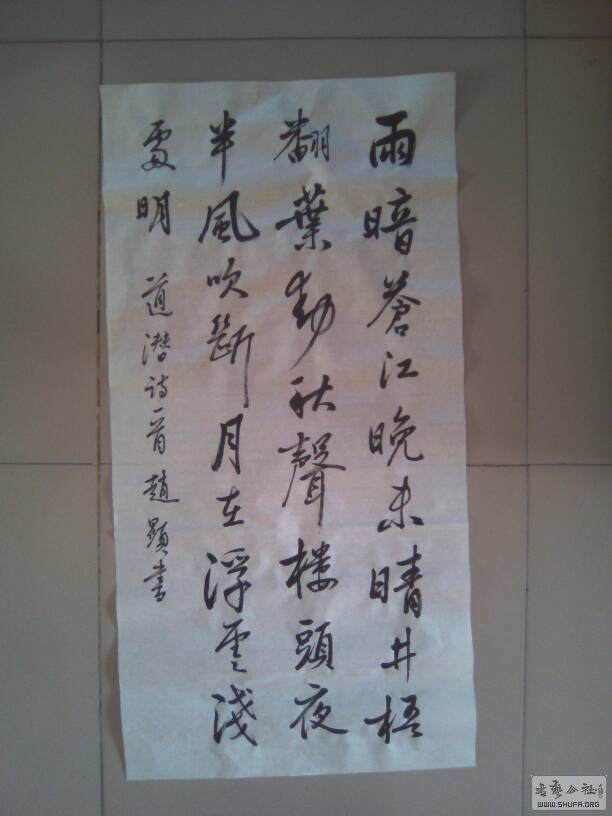 雨暗蒼江晚未晴井梧
翻葉動秋聲楼頭夜
半風吹斷月在浮雲淺
處明 道潜诗一首趙顯書
WWW.SHUFA.ORG